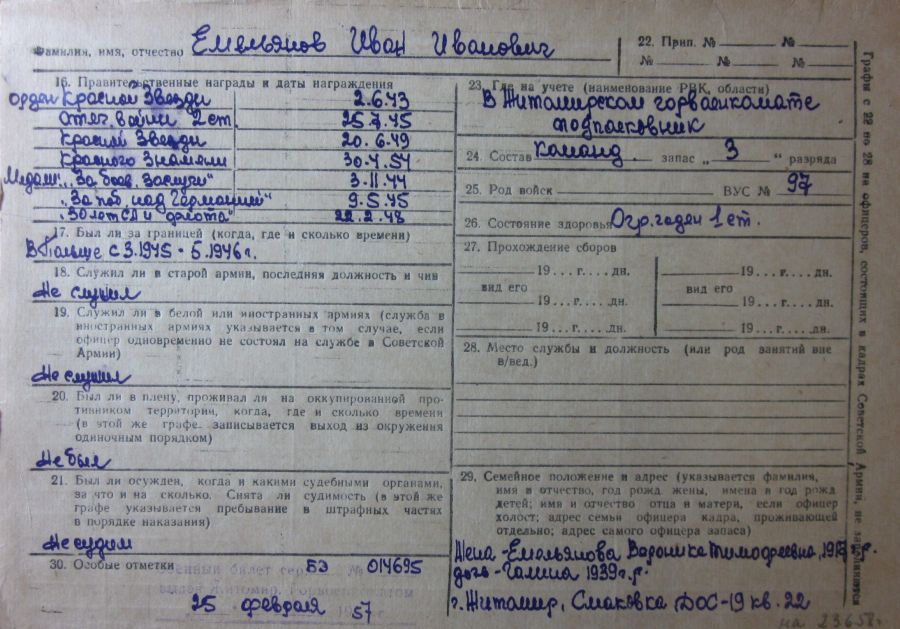 Фамилия, имя, отчество Емельянов Иван Иванович
22. Прип. № №
№ № №
16. Правительственные награды и даты награждения
орден Красной Звезды 2.6.43
Отеч. войны 2 ст. 25.7.45
Красной Звезды 20.6.49
Красного Знамени 30.4.54
Медали: „За боев. заслуги" 3.11.44
„За поб. над Германией" 9.5.45
„30 лет СА и флота" 22.2.48
17. Был ли за границей (когда, где и сколько времени)
В Польше с 3.1945 - 5.1946 г.
18. Служил ли в старой армии, последняя должность и чин
Не служил
19. Служил ли в белой или иностранных армиях (служба в
иностранных армиях указывается в том случае, если
офицер одновременно не состоял на службе в Советской
Армии)
Не служил
20. Был ли в плену, проживал ли на оккупированной про-
тивником территории, когда, где и сколько времени
(в этой же графе записывается выход из окружения
одиночным порядком)
Не был
21. Был ли осужден, когда и какими судебными органами,
за что и на сколько. Снята ли судимость (в этой же
графе указывается пребывание в штрафных частях
в порядке наказания)
Не судим
30. Особые отметки БЭ № 014695
военный билет
25 февраля 57
23. Где на учете (наименование РВК, области)
В Житомирском горвоенкомате
подполковник
24. Состав команд. запас „ 3 " разряда
25. Род войск ВУС № 97
26. Состояние здоровья Огр. годен 1 ст.
27. Прохождение сборов
19...г....дн. 19...г....дн.
вид его вид его
19...г....дн. 19...г....дн.
19...г....дн. 19...г....дн.
28. Место службы и должность (или род занятий вне
в/вед.)
29. Семейное положение и адрес (указывается фамилия,
имя и отчество, год рожд. жены, имена и год рожд.
детей; имя и отчество отца и матери, если офицер
холост; адрес семьи офицера кадра, проживающей
отдельно; адрес самого офицера запаса)
Жена - Емельянова Вероника Тимофеевна,
дочь - Галина 1939 г.р.
г. Житомир, Смаковка ДОС-19 кв. 22
на 23658г.
Графы с 22 по 28 на офицеров, состоящих в кадрах Советской Армии, не заполняются